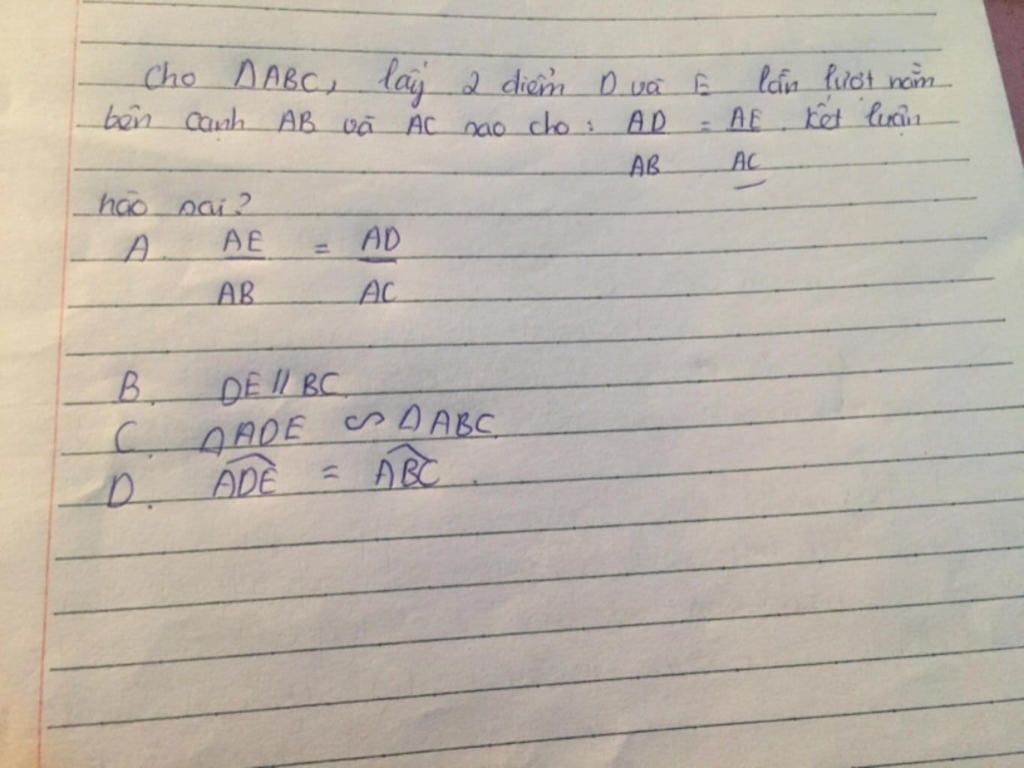 Cho ΔABC, lấy 2 điểm D và E lần lượt nằm
bên cạnh AB và AC sao cho: AD/AB = AE/AC. Kết luận
nào sai?
A. AE/AB = AD/AC
B. DE // BC.
C. ΔADE ∽ ΔABC
D. \widehat{ADE} = \widehat{ABC}.